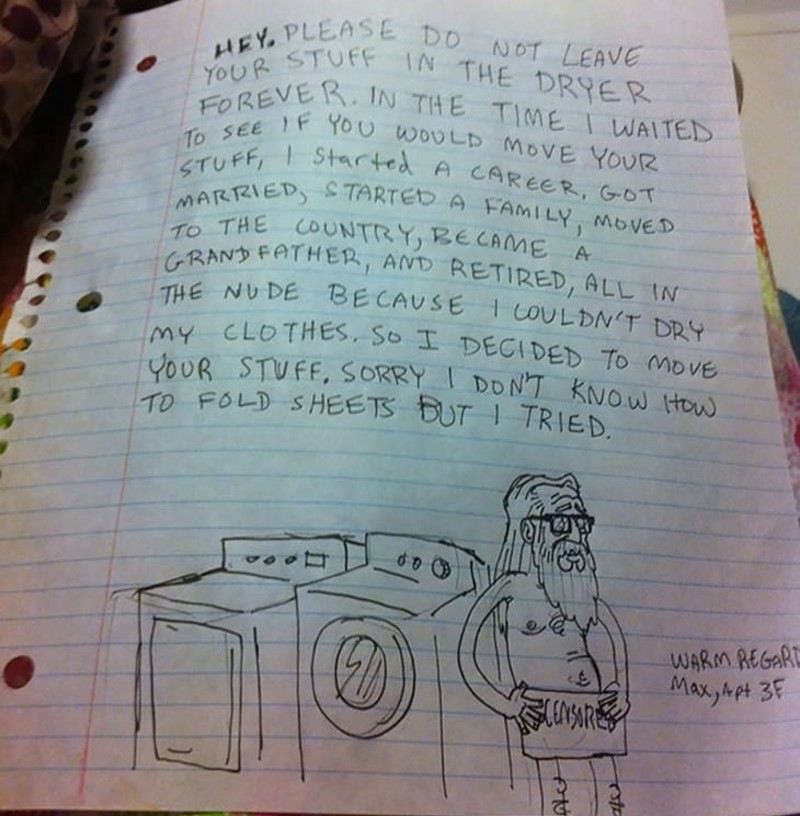 HEY. PLEASE DO NOT LEAVE
YOUR STUFF IN THE DRYER
FOREVER. IN THE TIME I WAITED
TO SEE IF YOU WOULD MOVE YOUR
STUFF, I Started A CAREER, GOT
MARRIED, STARTED A FAMILY, MOVED
TO THE COUNTRY, BECAME A
GRANDFATHER, AND RETIRED, ALL IN
THE NUDE BECAUSE I COULDN'T DRY
MY CLOTHES. SO I DECIDED TO MOVE
YOUR STUFF. SORRY I DON'T KNOW HOW
TO FOLD SHEETS BUT I TRIED.
CENSORED
WARM REGARD
Max, Apt 3F